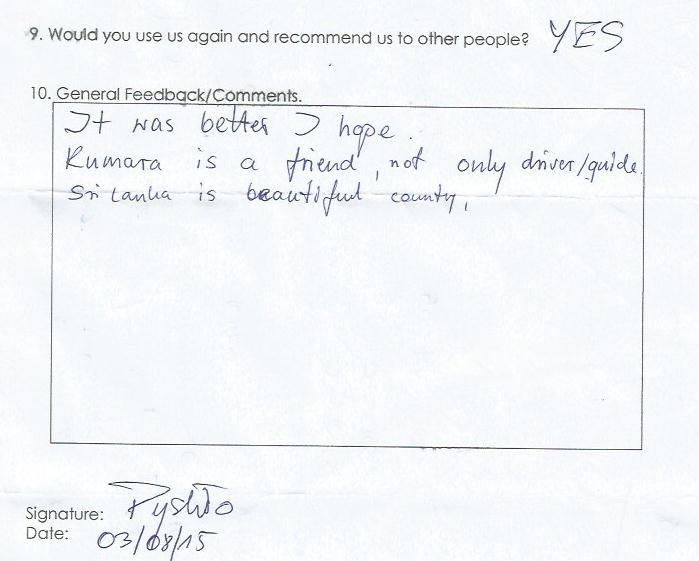 9. Would you use us again and recommend us to other people? YES
10. General Feedback/Comments.
It was better I hope.
Kumara is a friend, not only driver/guide.
Sri Lanka is beautiful county,
Signature:
Date: 03/08/15